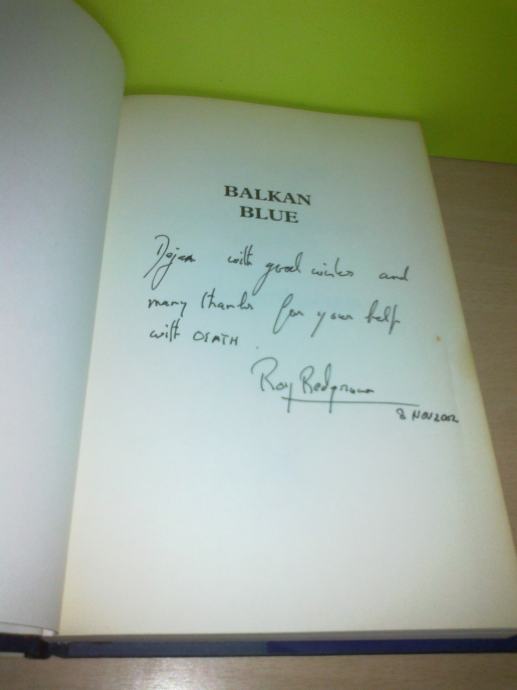 BALKAN
BLUE
Dejan with good wishes and
many thanks for your help
with OSMTH.
Roy Redgrave
8 NOV 2002